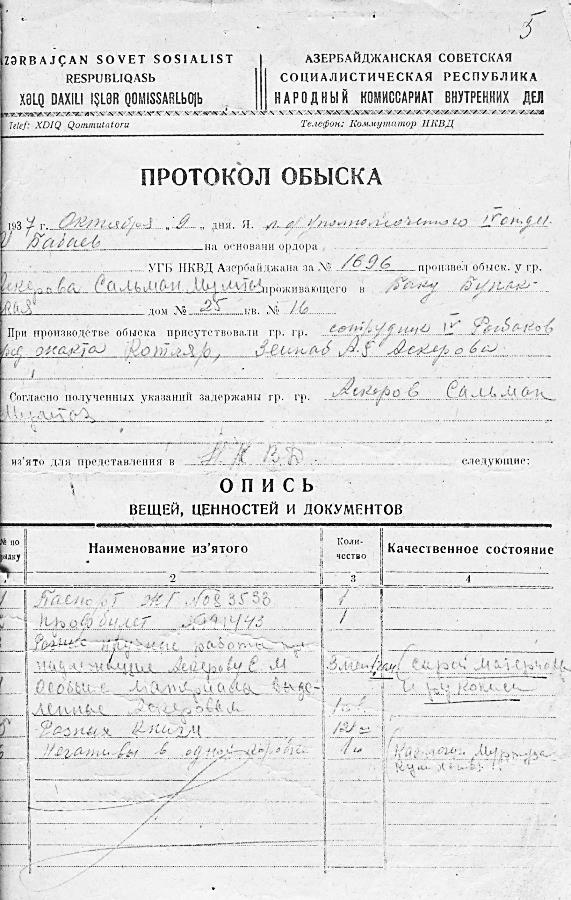 5
ZƏRBAJÇAN SOVET SOSIALIST
RESPUBLIQASЬ
XƏLQ DAXILI IŞLƏR QOMISSARLЬOЬ
АЗЕРБАЙДЖАНСКАЯ СОВЕТСКАЯ
СОЦИАЛИСТИЧЕСКАЯ РЕСПУБЛИКА
НАРОДНЫЙ КОМИССАРИАТ ВНУТРЕННИХ ДЕЛ
Telef: XDIQ Qommutatoru
Телефон: Коммутатор НКВД
ПРОТОКОЛ ОБЫСКА
1937 г. Октября „9„ дня. Я. IV отдел
Бабаев на основани ордора
УГБ НКВД Азербайджана за № 1696 произвел обыск. у гр.
Аскерова Сальман Мумтаз проживающего в Баку
дом № 25 кв. № 16
При производстве обыска присутствовали гр. гр. сотрудник IV Рыбаков
жакта Котляр, Зейнаб Аскерова
Согласно полученных указаний задержаны гр. гр. Аскеров Сальман
Мумтаз
из'ято для представления в НКВД следующие:
ОПИСЬ
ВЕЩЕЙ, ЦЕННОСТЕЙ И ДОКУМЕНТОВ
№ по
рядку
Наименование из'ятого
Коли-
чество
Качественное состояние
1 2 3 4
Паспорт № 83533 1
профбилет 1
Разные работы
надлежащие Аскерову С. М 3 и рукописи
особые материалы выде-
ленные Аскеровым
5 Разных книги
Негативы в одной коробке